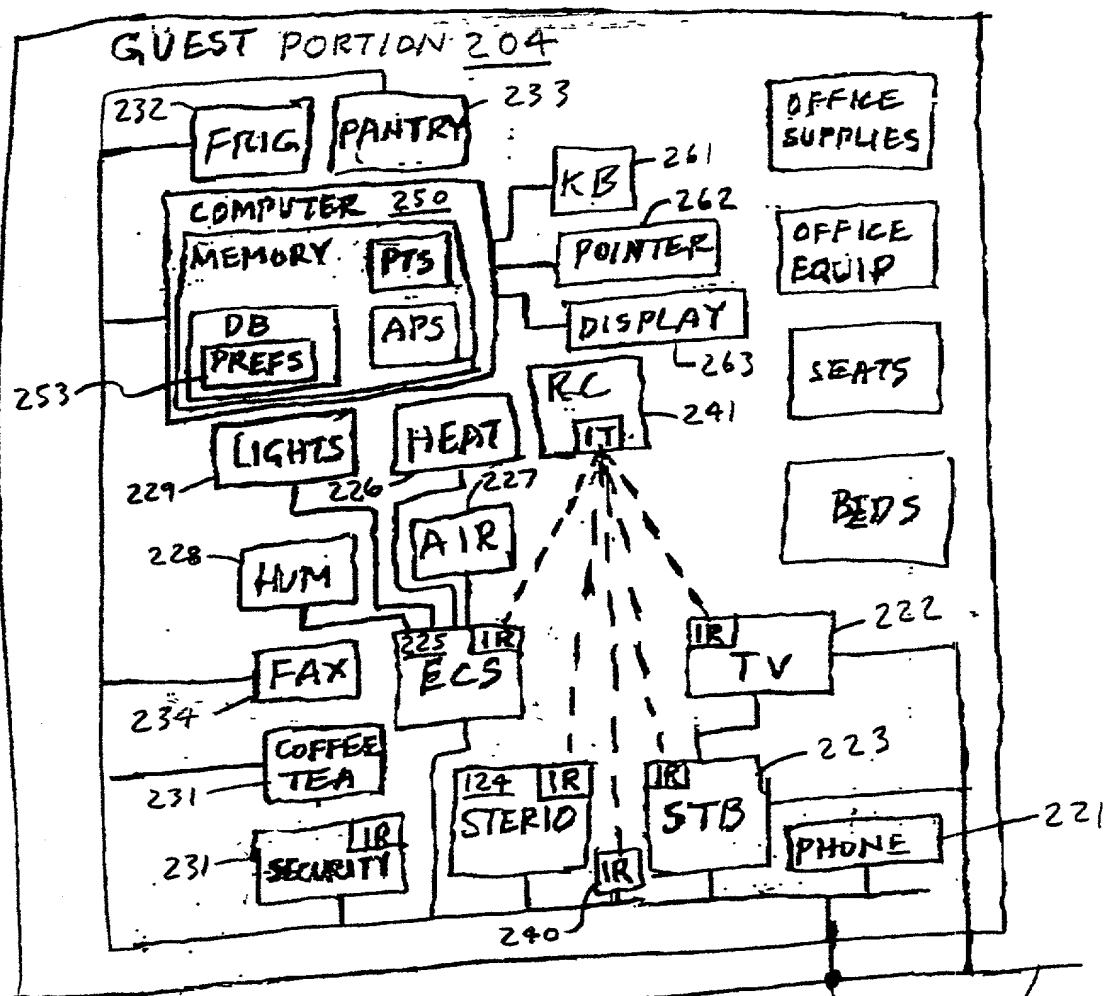 GUEST PORTION 204
232
FRIG
PANTRY
233
OFFICE
SUPPLIES
COMPUTER 250
MEMORY
PTS
DB
PREFS
APS
253
KB
261
262
POINTER
DISPLAY
263
OFFICE
EQUIP
RC
IT
241
SEATS
LIGHTS
229
HEAT
226
227
AIR
BEDS
228
HUM
225
IR
ECS
IR
TV
222
FAX
234
COFFEE
TEA
231
124
IR
STERIO
IR
STB
223
PHONE
221
IR
SECURITY
231
IR
240